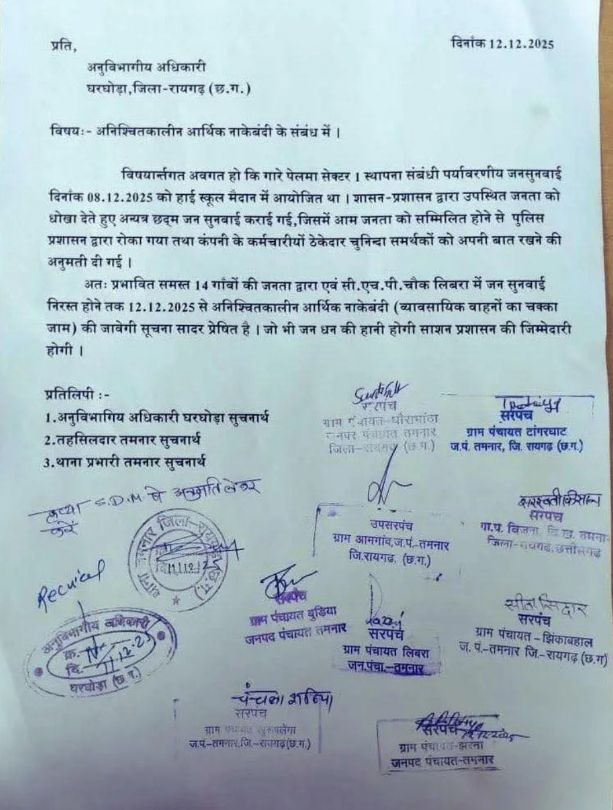 प्रति,
दिनांक 12.12.2025
अनुविभागीय अधिकारी
घरघोड़ा,जिला-रायगढ़ (छ.ग.)
विषयः- अनिश्चितकालीन आर्थिक नाकेबंदी के संबंध में ।
विषयार्न्तगत अवगत हो कि गारे पेलमा सेक्टर 1 स्थापना संबंधी पर्यावरणीय जनसुनवाई
दिनांक 08.12.2025 को हाई स्कूल मैदान में आयोजित था । शासन-प्रशासन द्वारा उपस्थित जनता को
धोखा देते हुए अन्यत्र छद्म जन सुनवाई कराई गई,जिसमें आम जनता को सम्मिलित होने से पुलिस
प्रशासन द्वारा रोका गया तथा कंपनी के कर्मचारीयों ठेकेदार चुनिन्दा समर्थकों को अपनी बात रखने की
अनुमती दी गई ।
अतः प्रभावित समस्त 14 गाँवों की जनता द्वारा एवं सी.एच.पी.चौक लिबरा में जन सुनवाई
निरस्त होने तक 12.12.2025 से अनिश्चितकालीन आर्थिक नाकेबंदी (व्यावसायिक वाहनों का चक्का
जाम) की जावेगी सूचना सादर प्रेषित है । जो भी जन धन की हानी होगी साशन प्रशासन की जिम्मेदारी
होगी ।
प्रतिलिपी :-
1.अनुविभागिय अधिकारी घरघोड़ा सुचनार्थ
2.तहसिलदार तमनार सुचनार्थ
3.थाना प्रभारी तमनार सुचनार्थ
सरपंच
ग्राम पंचायत-धौराभांठा
जनपद पंचायत तमनार
जिला-रायगढ़ (छ.ग.)
सरपंच
ग्राम पंचायत टांगरघाट
ज.पं. तमनार, जि. रायगढ़ (छ.ग.)
S.D.M से अनुमति लेकर
करें
थाना तमनार जिला-रायगढ़ (छ.ग.)
उपसरपंच
ग्राम आमगांव,ज.पं.-तमनार
जि.रायगढ़. (छ.ग.)
सरपंच
ग्रा.प. बिजना, वि.ख. तमनार
जिला-रायगढ़,छत्तीसगढ़
अनुविभागीय अधिकारी
क्र.
दि. 11.12.25
घरघोड़ा (छ.ग.)
सरपंच
ग्राम पंचायत बुडिया
जनपद पंचायत तमनार
सरपंच
ग्राम पंचायत लिबरा
जन.पंचा.-तमनार
सीता सिदार
सरपंच
ग्राम पंचायत - झिंकाबहाल
ज. पं.-तमनार जि.-रायगढ़ (छ.ग.)
सरपंच
ग्राम पंचायत
ज.पं.-तमनार,जि.-रायगढ़(छ.ग.)
सरपंच
ग्राम पंचायत-झरना
जनपद पंचायत-तमनार